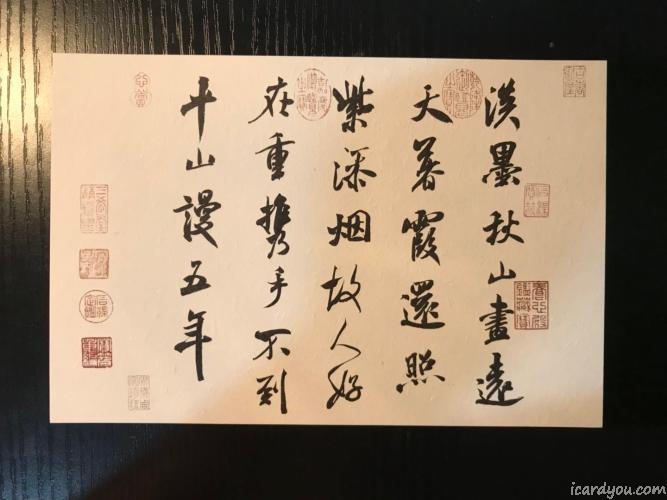 淡墨秋山畫遠
天暮霞還照
紫添烟故人好
在重攜手不到
平山謾五年
icardyou.com